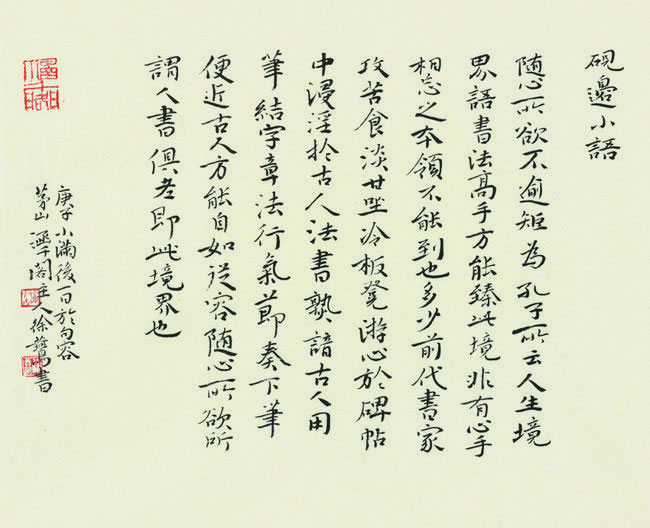 砚邊小語
随心所欲不逾矩為孔子所云人生境
界語書法髙手方能臻此境非有心手
相忘之本領不能到也多少前代書家
攻苦食淡甘坐冷板凳游心於碑帖
中浸淫於古人法書熟諳古人用
筆結字章法行氣節奏下筆
便近古人方能自如從容随心所欲所
謂人書俱老即此境界也
庚子小滿後一日於句容
茅山 閣主人徐 書